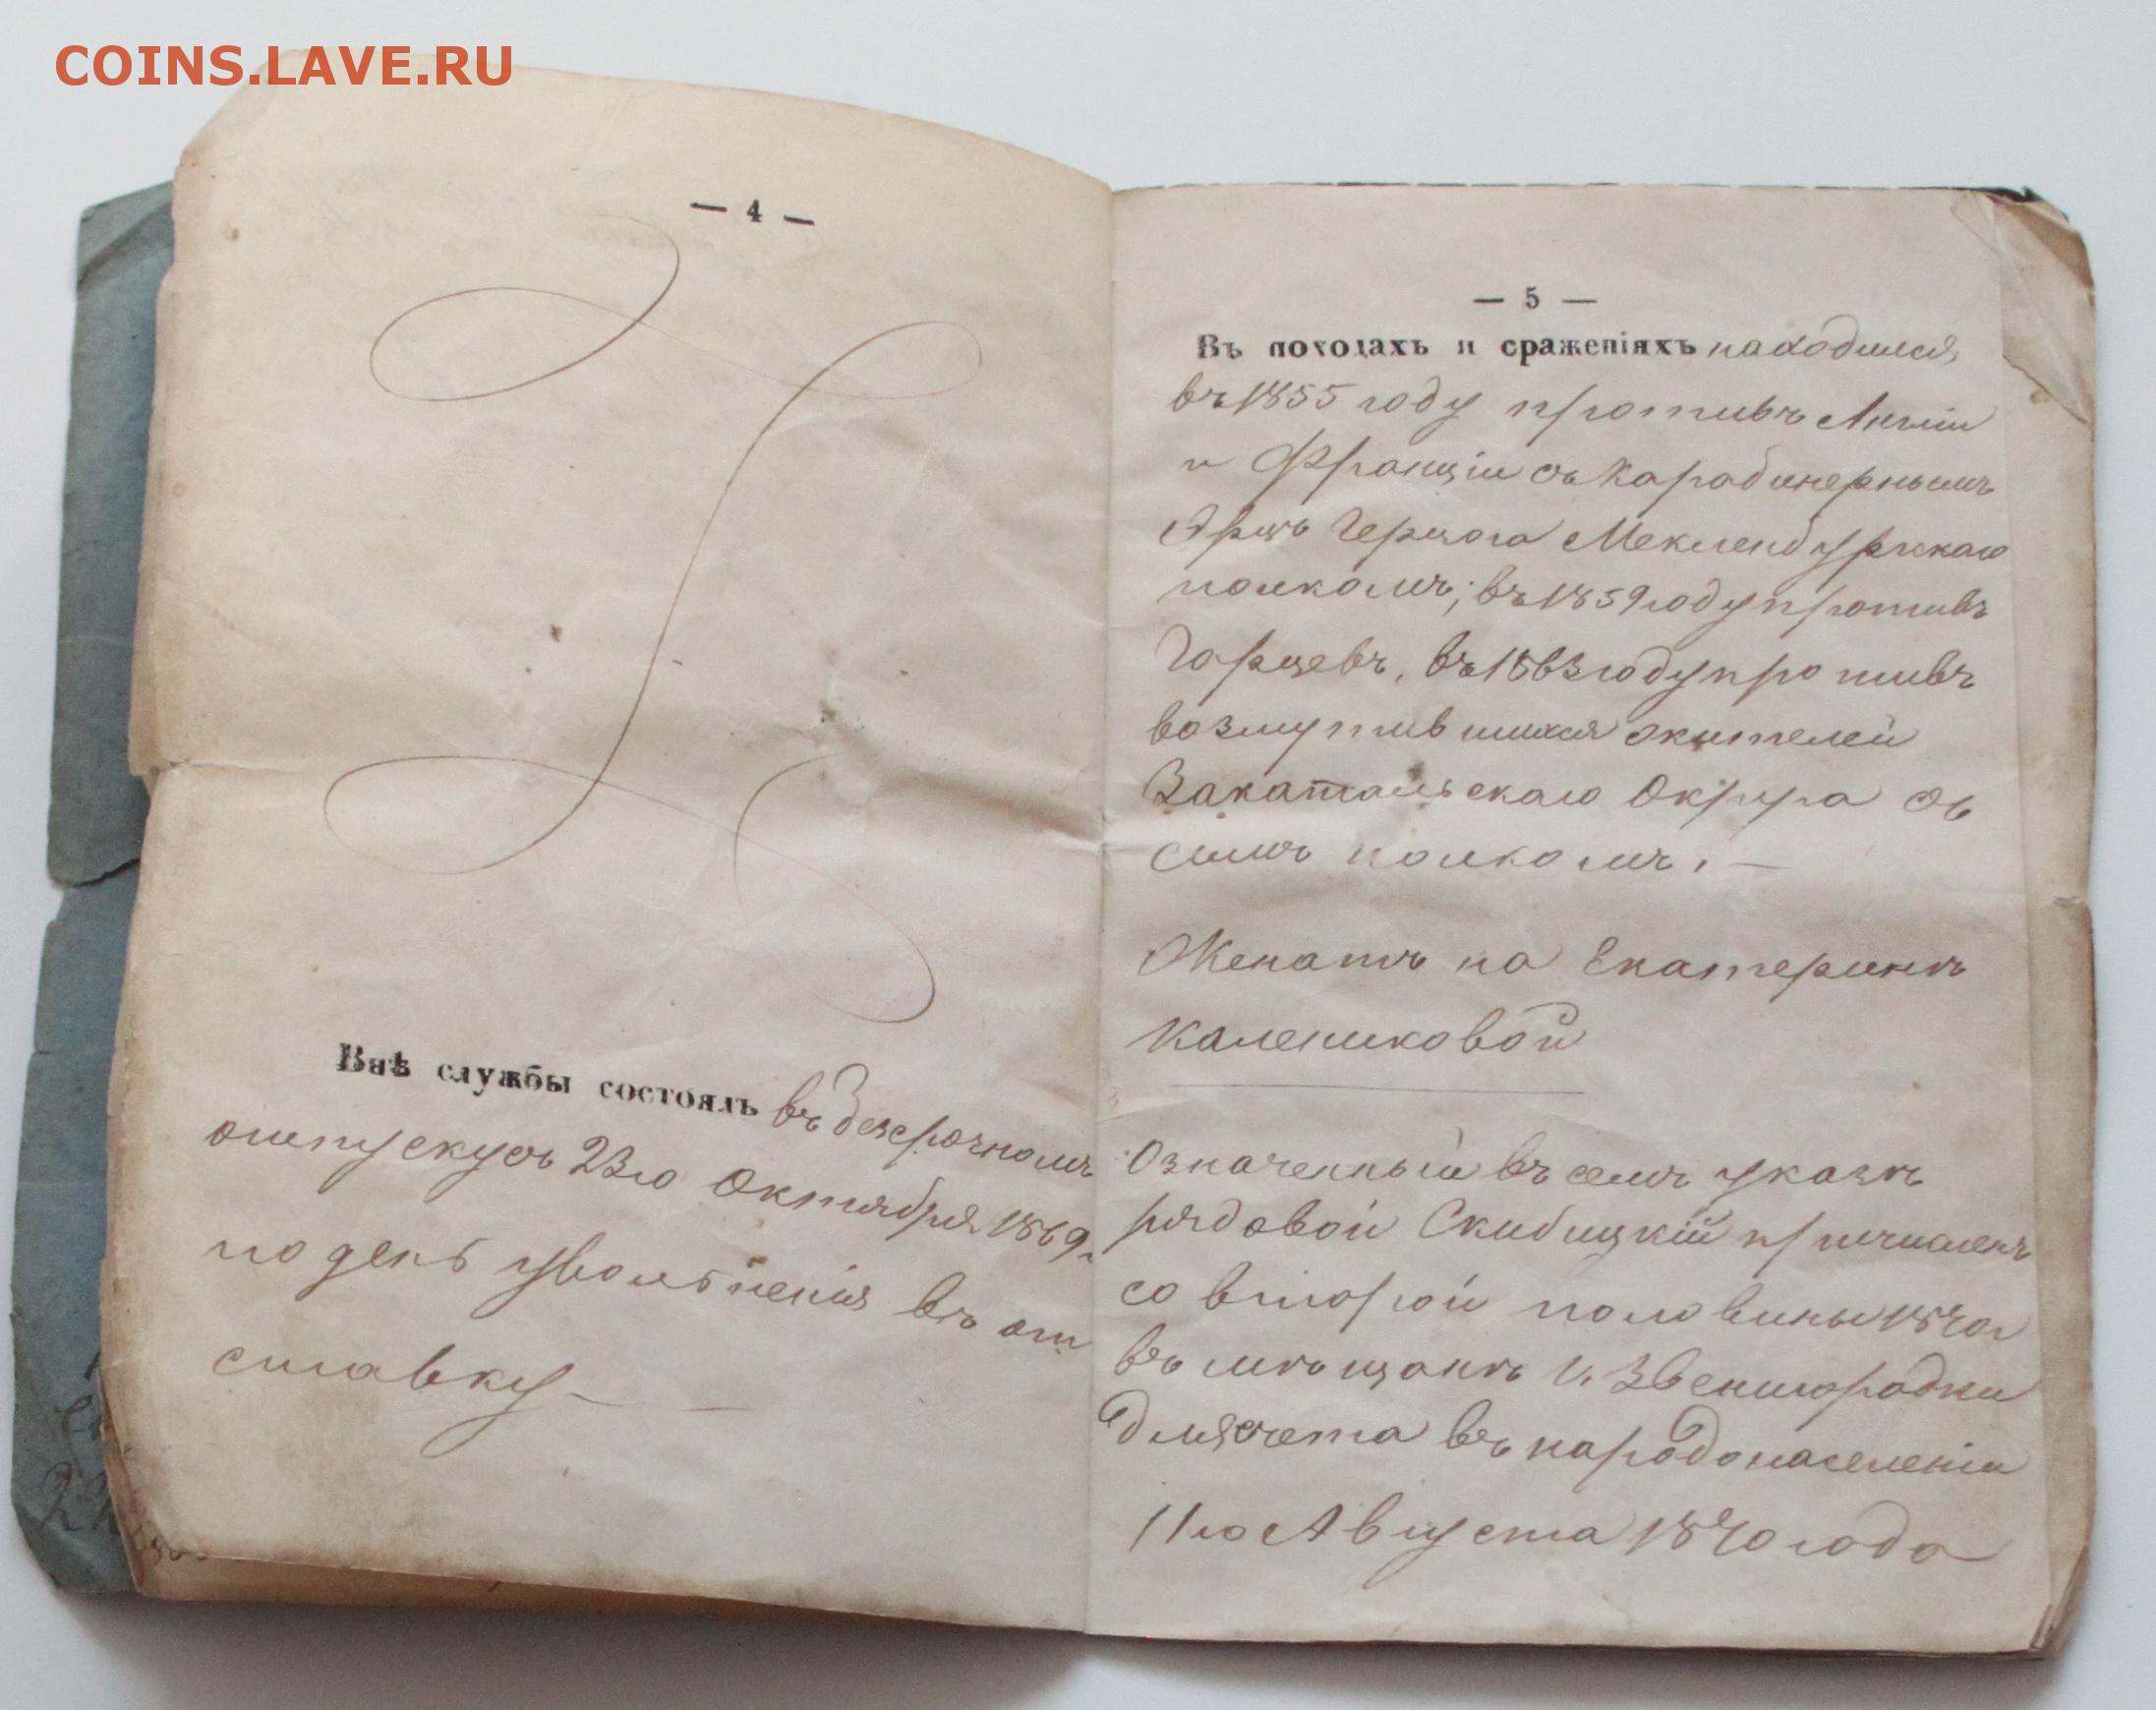 COINS.LAVE.RU
— 4 —
Внѣ службы состоялъ въ безсрочномъ
отпуску съ 23го Октября 1869 г
по день увольненія въ от
ставку —
— 5 —
Въ походахъ и сраженіяхъ находился
въ 1855 году противъ Англіи
и Франціи съ Карабинернымъ
Герцога Мекленбургскаго
полкомъ; въ 1859 году противъ
Горцевъ, въ 1863 году противъ
возмутившихся жителей
Закатальскаго Округа съ
симъ полкомъ. —
Женатъ на Екатеринѣ
Калениковой
Означенный въ семъ указѣ
рядовой Скибицкій причисленъ
со второй половины 1870 г
въ мѣщане г. Звенигородки
для счета въ народонаселеніи
11го Августа 1870 года